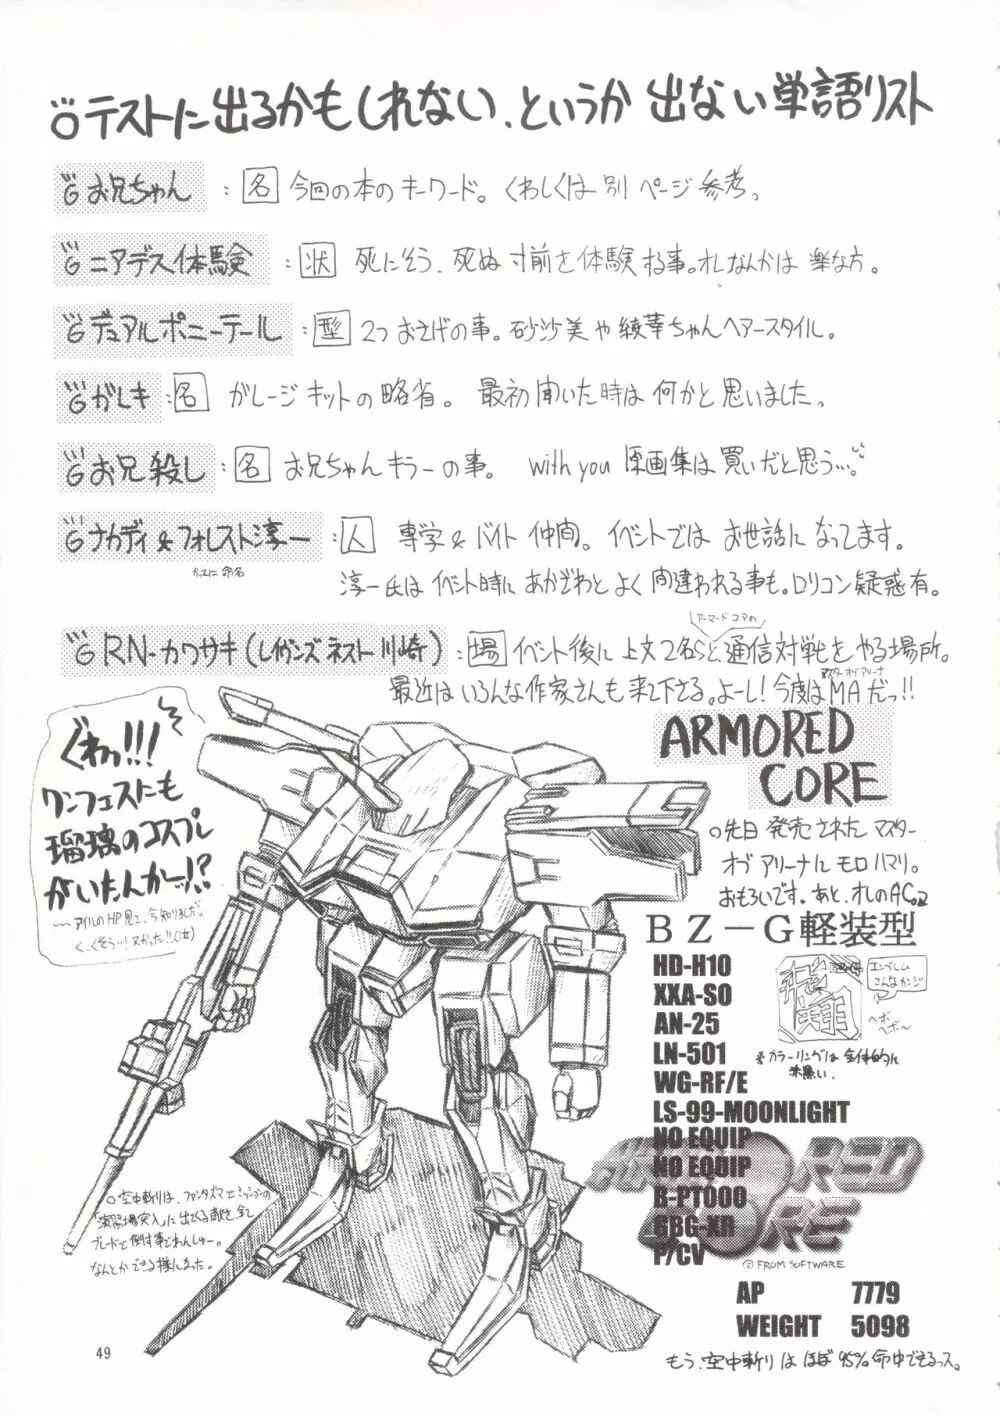 テストに出るかもしれない、というか 出ない単語リスト
お兄ちゃん : 名 今回の本のキーワード。くわしくは 別 ページ参考。
ニアデス体験 : 状 死にそう、死ぬ寸前を体験する事。オレなんかは 楽な方。
デュアルポニーテール : 型 2つおさげの事。砂沙美や綾華ちゃんヘアースタイル。
ガレキ : 名 ガレージキットの略省。 最初聞いた時は何かと思いました。
お兄殺し : 名 お兄ちゃんキラーの事。 with you 原画集は買いだと思う…。
ナカディ&フォレスト淳一 : 人 専学&バイト仲間。イベントでは お世話になってます。
かってに命名
淳一氏はイベント時にあかざわとよく間違われる事も。ロリコン疑惑有。
アーマードコアの
RN-カワサキ(レイヴンズネスト川崎) : 場 イベント後に上文2名と、通信対戦をやる場所。
マスターオブアリーナ
最近はいろんな作家さんも来て下さる。よーし!今度はMAだっ!!
ぐわっ!!!
ワンフェスにも
瑠璃のコスプレ
がいたんかーッ!?
〜アイルのHP見て、今知りました。
く、くそう…!ヌかった!!(泣)
ARMORED
CORE
○先日 発売された マスター
オブアリーナにモロハマリ。
おもろいです。あと、オレのACっス
BZ-G軽装型
HD-H10
XXA-SO
AN-25
LN-501
WG-RF/E
LS-99-MOONLIGHT
NO EQUIP
NO EQUIP
B-PT000
GBG-XR
P/CV
翔
エンブレム
こんなカンジ
ヘボ
ヘボ〜
※カラーリングは 全体的に
赤黒い。
ARMORED
CORE
© FROM SOFTWARE
AP 7779
WEIGHT 5098
もう、空中斬りは ほぼ 95%命中できるっス。
○空中斬りは、ファンタズマでミッションの
「演習場突入」に出てくる敵を全て
ブレードで倒す事でれんしゅー。
なんとかできる様になった。
49